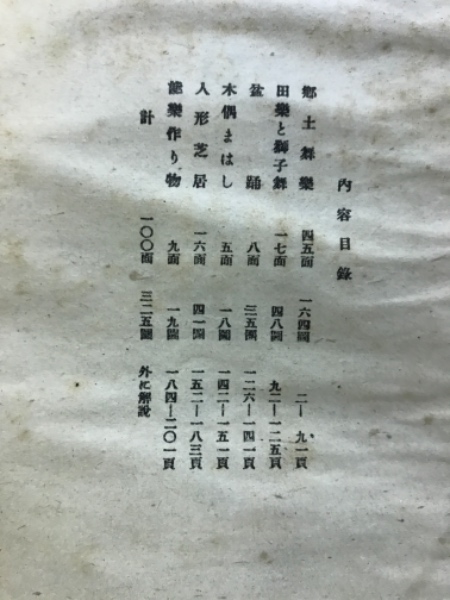 內容目錄
鄕土舞樂 四五面 一六四圖 二―九一頁
田樂と獅子舞 一七面 四八圖 九二―一二五頁
盆踊 八面 三五圖 一二六―一四一頁
木偶まはし 五面 一八圖 一四二―一五一頁
人形芝居 一六面 四一圖 一五二―一八三頁
能樂作り物 九面 一九圖 一八四―二〇一頁
計 一〇〇面 三二五圖 外に解說